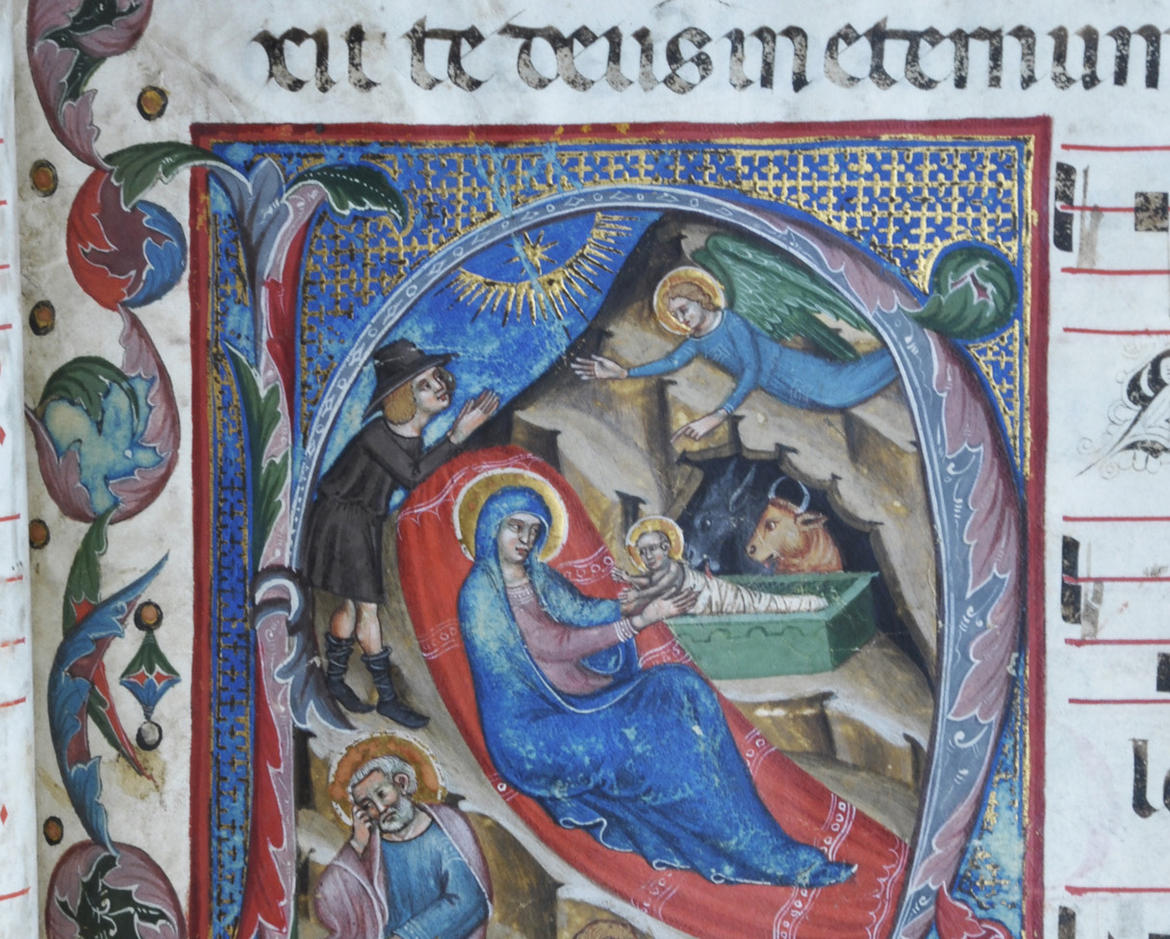 xit te deus in eternum
le